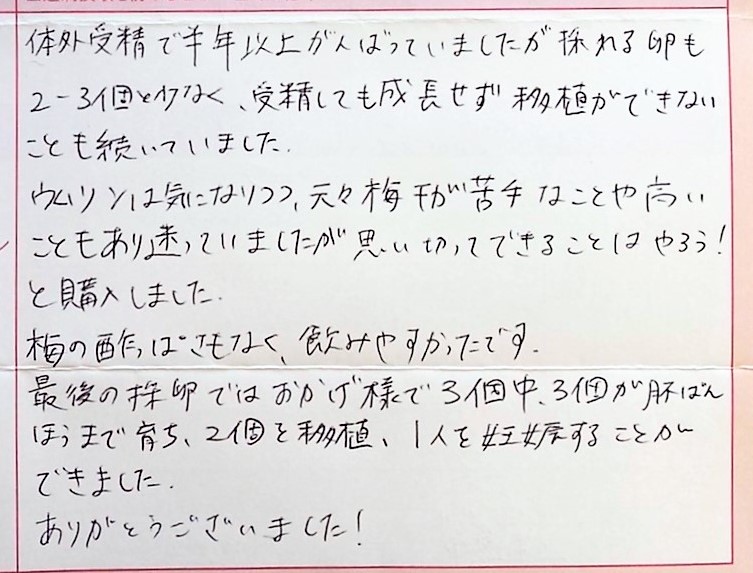 体外受精で半年以上がんばっていましたが採れる卵も
2-3個と少なく、受精しても成長せず移植ができない
ことも続いていました.
ウムリンは気になりつつ、元々梅干が苦手なことや高い
こともあり迷っていましたが思い切ってできることはやろう!
と購入しました.
梅の酢っぱさもなく、飲みやすかったです.
最後の採卵ではおかげ様で3個中、3個が胚ばん
ほうまで育ち、2個を移植、1人を妊娠することが
できました.
ありがとうございました!